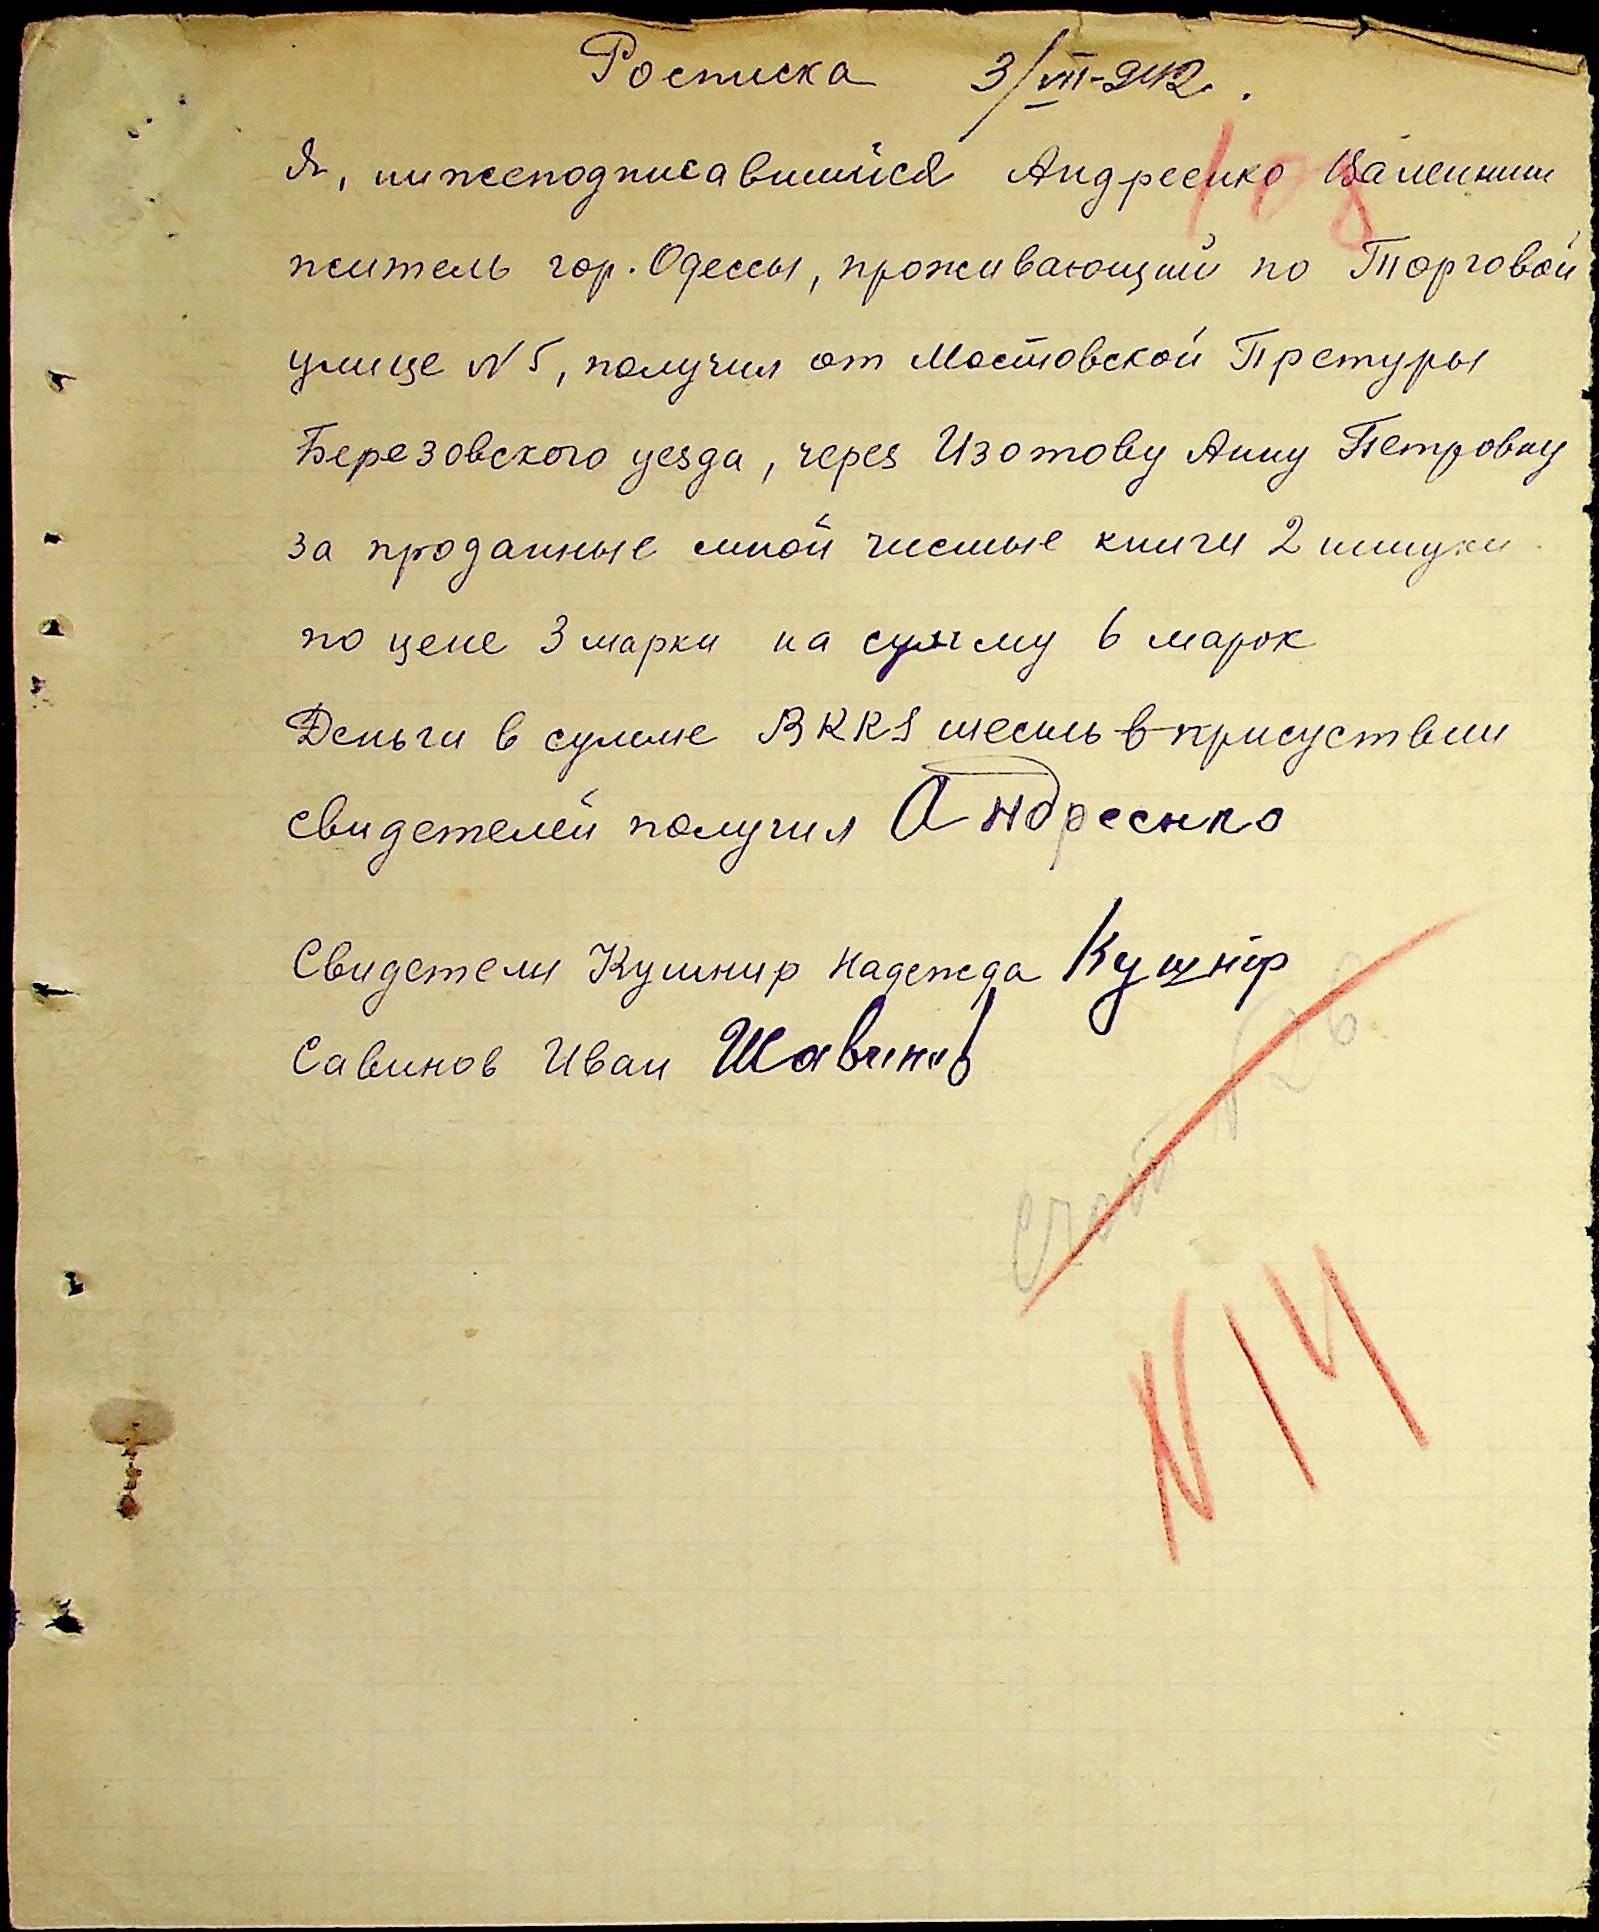 Росписка 3/VII-942.
108
Я, нижеподписавшийся Андреенко Валентин
житель гор. Одессы, проживающий по Торговой
улице N 5, получил от Мостовской Претуры
Березовского уезда, через Изотову Анну Петровну
за проданные мной чистые книги 2 штуки
по цене 3 марки на сумму 6 марок
Деньги в сумме RKKS шесть в присуствии
свидетелей получил Андреенко
Свидетели Кушнир Надежда Кушнір
Савинов Иван Шавинов
счет N 26
N 14